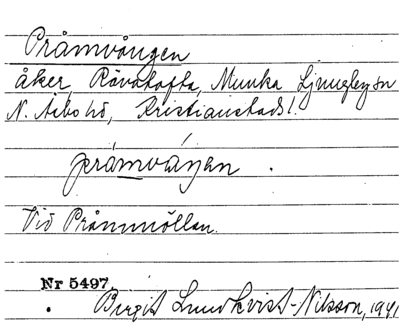 Pråmvången
åker, Rävatofta, Munka Ljungby sn
N. Åsbo hd, Kristianstads l.
pråmváŋen .
Vid Pråmmöllan.
Nr 5497.
Birgit Lundkvist-Nilsson, 1941